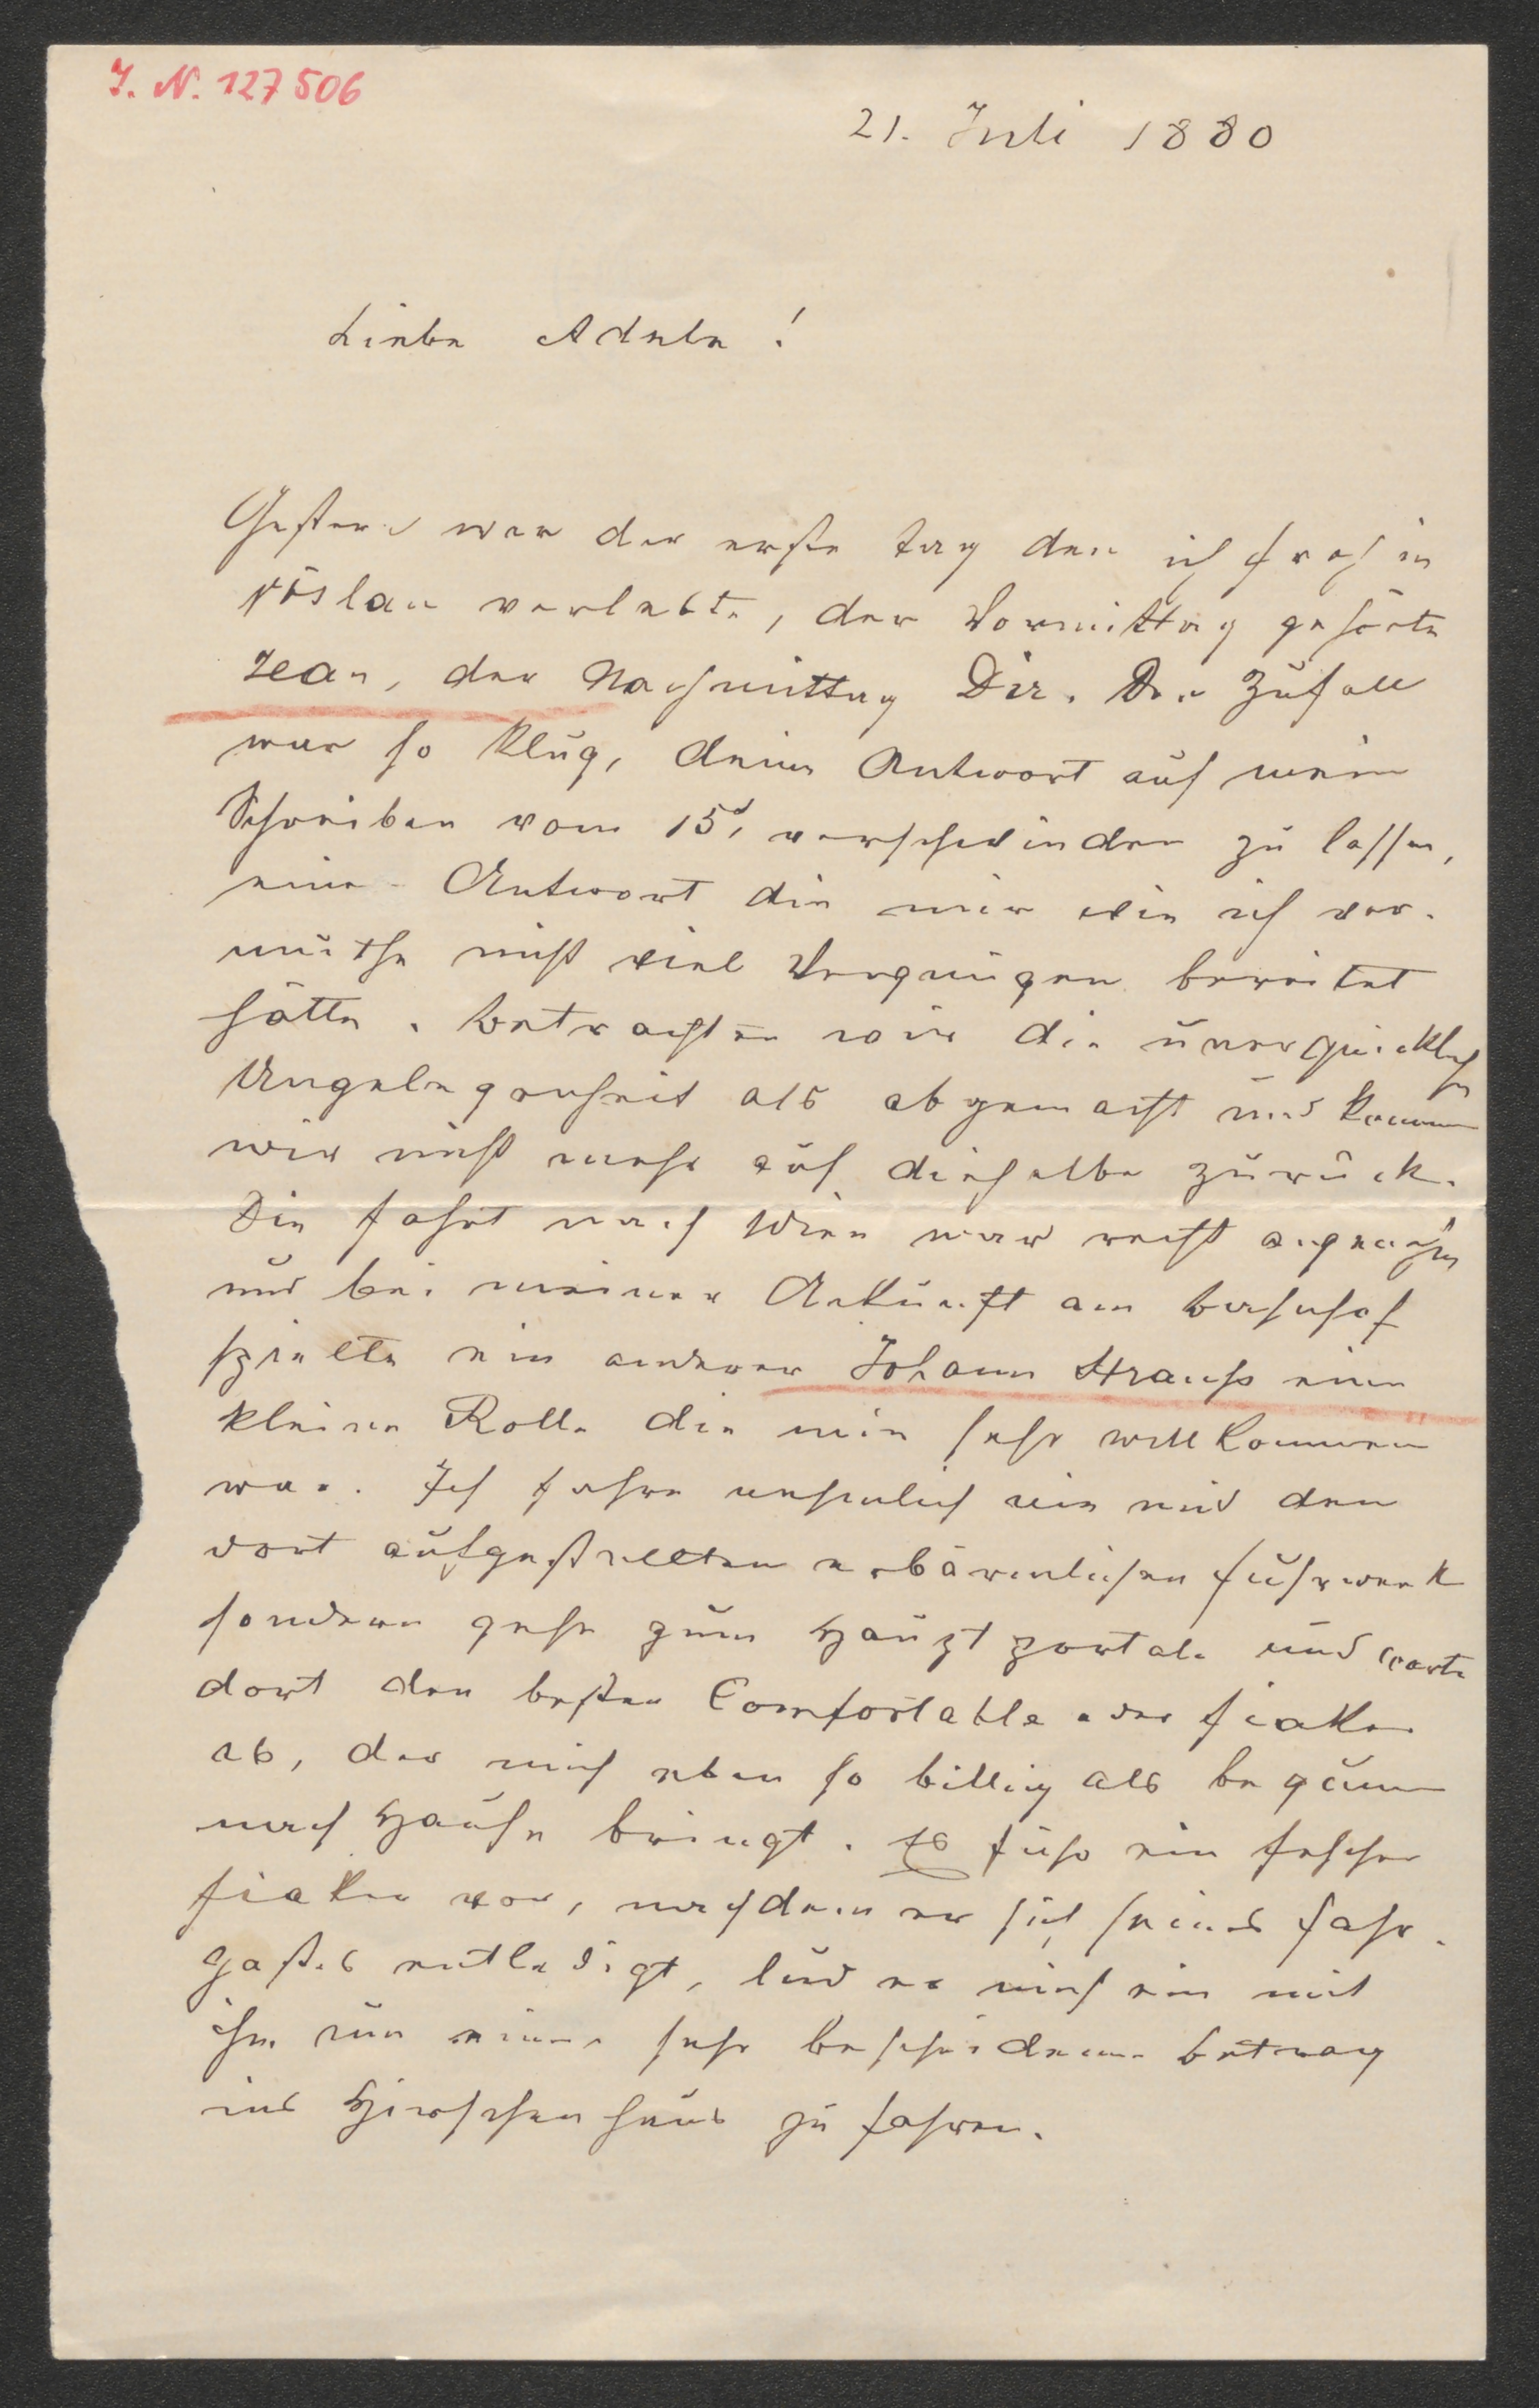 I. N. 127506
21. Juli 1880
Liebe Adele!
Gestern war der erste Tag den ich froh in
Vöslau verlebte, der Vormittag gehörte
Jean, der Nachmittag Dir. Der Zufall
war so klug, deine Antwort auf mein
Schreiben vom 15d, verschwinden zu lassen,
eine Antwort die mir wie ich ver-
muthe nicht viel Vergnügen bereitet
hätte. Betrachten wir die unerquickliche
Angelegenheit als abgemacht und kommen
wir nicht mehr auf dieselbe zurück.
Die Fahrt nach Wien war recht angenehm
und bei meiner Ankunft am Bahnhof
spielte ein anderer Johann Strauss eine
kleine Rolle die mir sehr willkommen
war. Ich fahre nehmlich nie mit den
dort aufgestellten erbärmlichen Fuhrwerk
sondern gehe zum Hauptportale und warte
dort den besten Comfortable oder Fiaker
ab, der mich eben so billig als bequem
nach Hause bringt. Es fuhr ein fescher
Fiaker vor, nachdem er sich seines Fahr-
gastes entledigt, lud er mich ein mit
ihm um einen sehr bescheidenen Betrag
ins Hirschenhaus zu fahren.